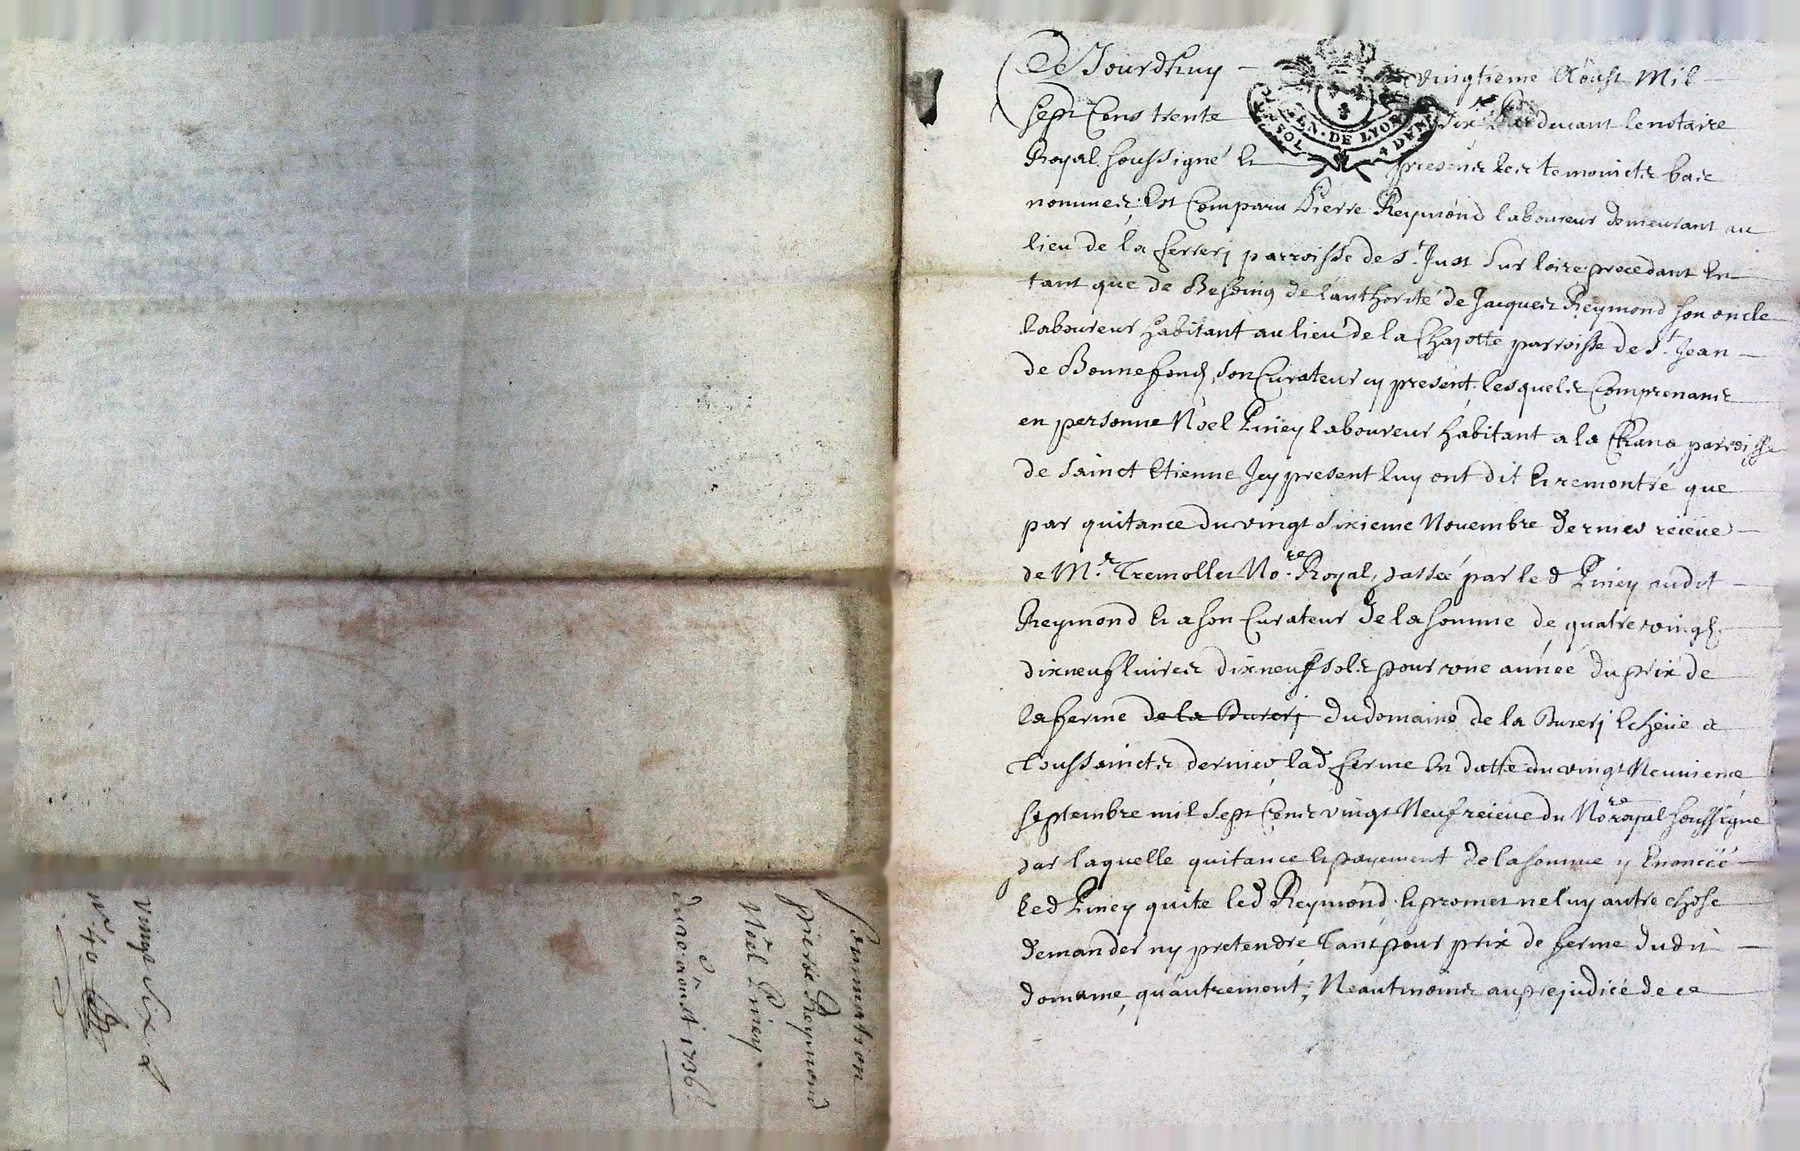 Ce Jourdhuy vingtieme Aoust Mil
Sept Cens trente Six Pardevant le notaire
GEN. DE LYON
SOL 4 DEN
Royal soussigné et presens les temoincts bas
nommes; Est Comparu Pierre Reymond laboureur demeurant au
lieu de la ferrery parroisse de St. Just sur loire procedant En
tant que de Besoing de l'authorité de Jacques Reymond son oncle
laboureur habitant au lieu de la Chazotte parroisse de St. Jean
de Bonnefond, son Curateur cy present, lesquels Comprenans
en personne Noel Piney laboureur habitant a la Chana parroisse
de Sainct Etienne Icy present luy ont dit et remontré que
par quitance du vingt sixieme Novembre dernier receue
de Mr. Tremollet No.re Royal, passée par led Piney audit
Reymond et a son Curateur de la somme de quatre vingt
dixneuf livres dixneuf sols pour une année du prix de
la ferme de la Burery du domaine de la Burery Echeue a
Toussaincts dernier, lad ferme En datte du vingt Neuvieme
Septembre mil Sept Cents vingt Neuf receue du No.re royal soussigné
par laquelle quitance et payement de la somme y Enoncée
led Piney quite led Reymond et promet ne luy autre chose
demander ny pretendre tant pour prix de ferme dudit
domaine, qu'autrement; Neantmoins au prejudice de ce
Sommation
pierre Reymond
Noël Piney
du 20 aoust 1736
vingt six
n° 40